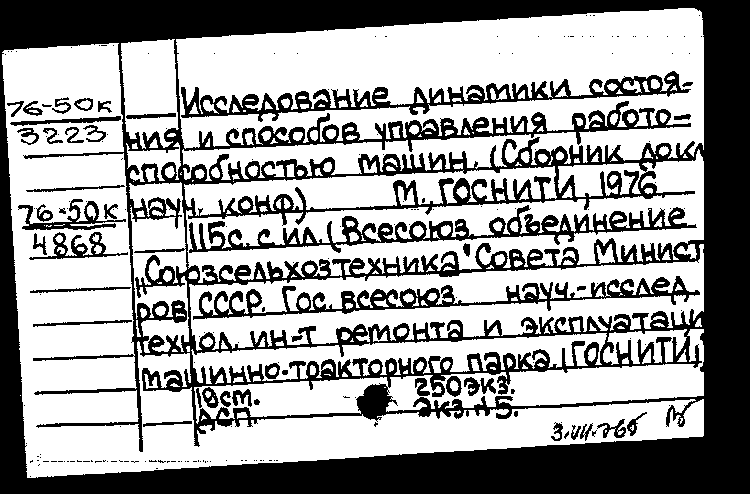 76-50к
3223
Исследование динамики состоя-
ния и способов управления работо-
способностью машин. (Сборник докл
науч. конф.). М., ГОСНИТИ, 1976.
76-50К
4868
115с. с ил. (Всесоюз. объединение
„Союзсельхозтехника" Совета Минист
ров СССР. Гос. всесоюз. науч.-исслед.
технол. ин-т ремонта и эксплуатаци
машинно-тракторного парка. (ГОСНИТИ)
18ст. 250экз.
ДСП. экз. 15.
3.VII.76б